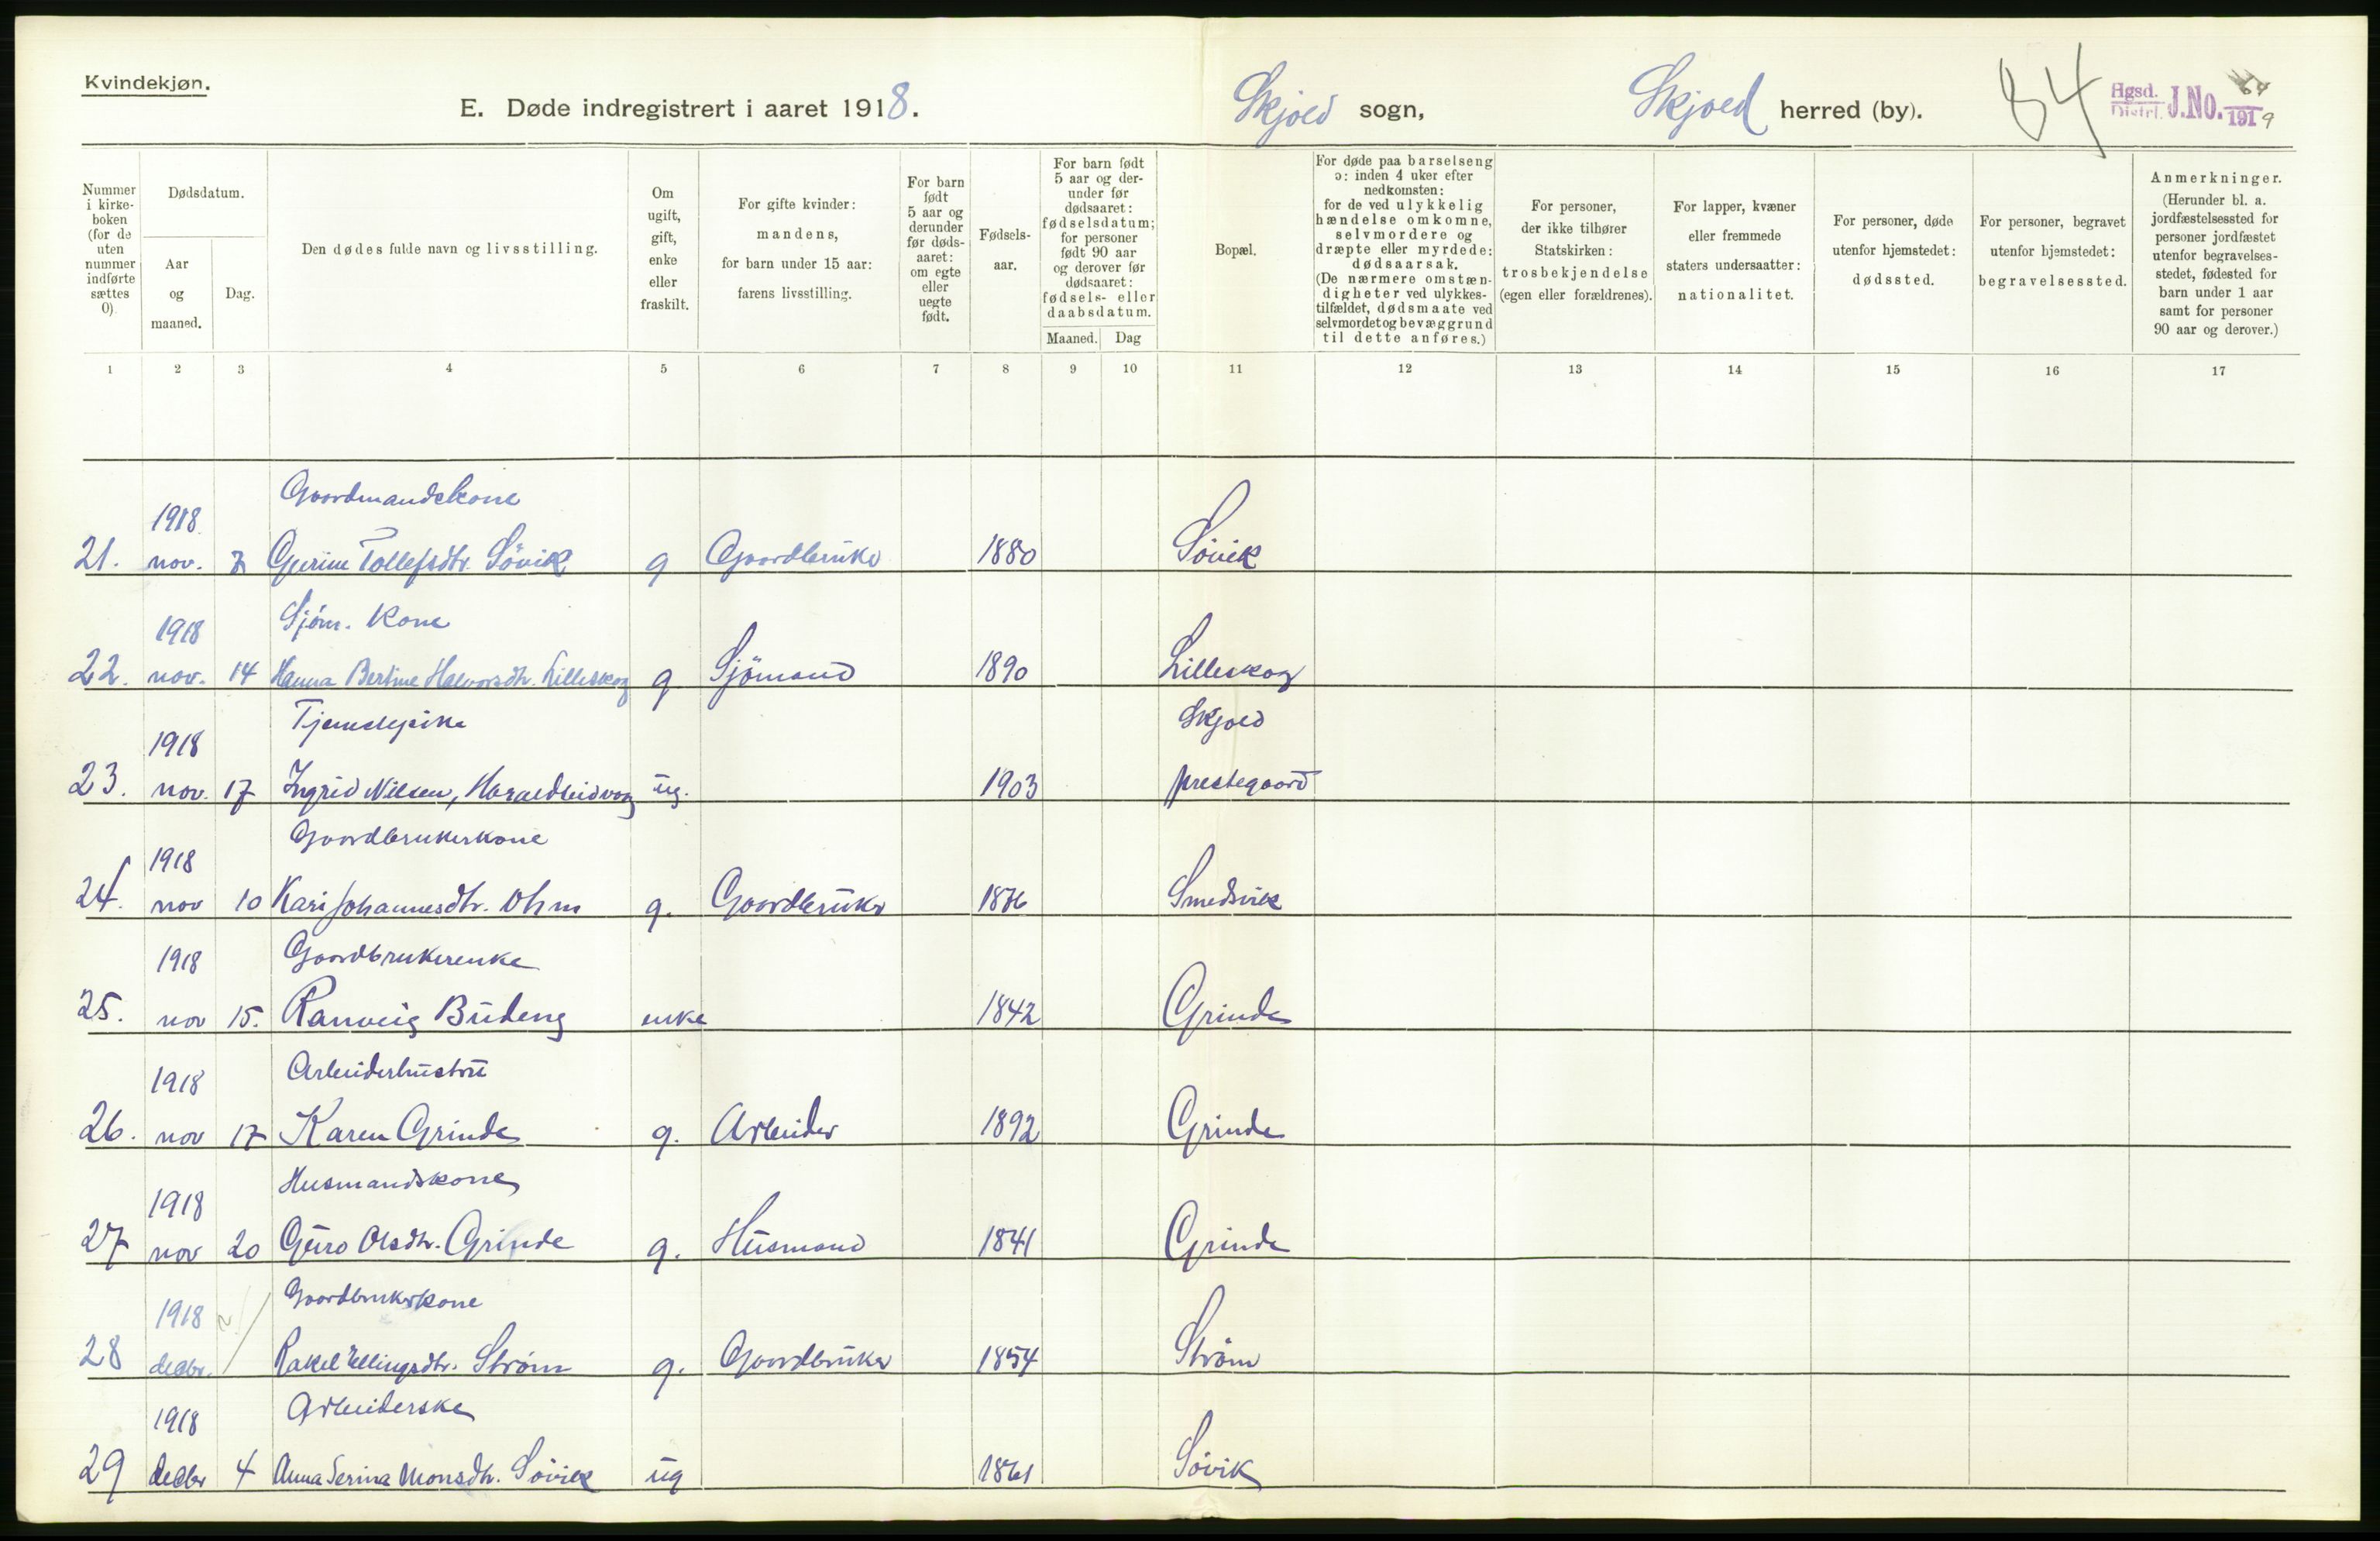 Kvindekjøn.
E. Døde indregistrert i aaret 1918.
Skjold sogn,
Skjold herred (by).
84
Hgsd. Distrl. J.No. 84 1919
Nummer i kirke-boken (for de uten nummer indførte sættes 0)
Dødsdatum.
Aar og maaned.
Dag.
Den dødes fulde navn og livsstilling.
Om ugift, gift, enke eller fraskilt.
For gifte kvinder: mandens, for barn under 15 aar: farens livsstilling.
For barn født 5 aar og derunder før døds-aaret: om egte eller uegte født.
Fødsels-aar.
For barn født 5 aar og der-under før dødsaaret: fødselsdatum; for personer født 90 aar og derover før dødsaaret: fødsels- eller daabsdatum.
Maaned.
Dag
Bopæl.
For døde paa barselseng ɔ: inden 4 uker efter nedkomsten: for de ved ulykkelig hændelse omkomne, selvmordere og dræpte eller myrdede: dødsaarsak. (De nærmere omstæn-digheter ved ulykkes-tilfældet, dødsmaate ved selvmordet og bevæggrund til dette anføres.)
For personer, der ikke tilhører Statskirken: trosbekjendelse (egen eller forældrenes).
For lapper, kvæner eller fremmede staters undersaatter: nationalitet.
For personer, døde utenfor hjemstedet: dødssted.
For personer, begravet utenfor hjemstedet: begravelsessted.
Anmerkninger. (Herunder bl. a. jordfæstelsessted for personer jordfæstet utenfor begravelses-stedet, fødested for barn under 1 aar samt for personer 90 aar og derover.)
1 2 3 4 5 6 7 8 9 10 11 12 13 14 15 16 17
1918. Gaardmandskone
21. nov. 7 Gurine Tollefsdtr. Søvik g Gaardbruker 1880 Søvik
1918 Sjøm. kone
22. nov. 14 Hanna Bertine Halvorsdtr. Lilleskog g. Sjømand 1890 Lilleskog
1918 Tjenestepike Skjold
23. nov. 17 Ingrid Nilsen, Haraldseidvåg ug. 1903 prestegaard
1918 Gaardbrukerkone
24. nov 10 Kari Johannesdtr. Ohm g. Gaardbruker Smedsvik
1918 Gaardbrukerenke
25. nov 15. Ranveig Budeng enke 1842 Grinde
1918 Arbeiderhustru
26. nov 17 Karen Grinde g. Arbeider 1892 Grinde
1918 Husmandskone
27 nov 20 Guro Olsdtr. Grinde g. Husmand 1841 Grinde
1918 Gaardbrukerkone
28 decbr. Rakel Ellingsdtr. Strøm g. Gaardbruker 1854 Strøm
1918 Arbeiderske
29 decbr 4 Anna Serina Monsdtr. Søvik ug 1861 Søvik